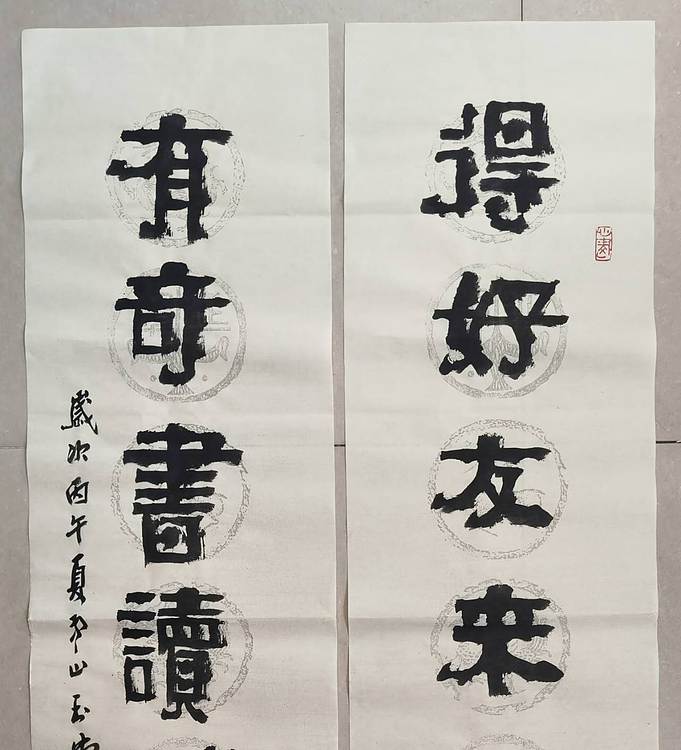 得好友来
有奇書讀
歲次丙午夏
山玉